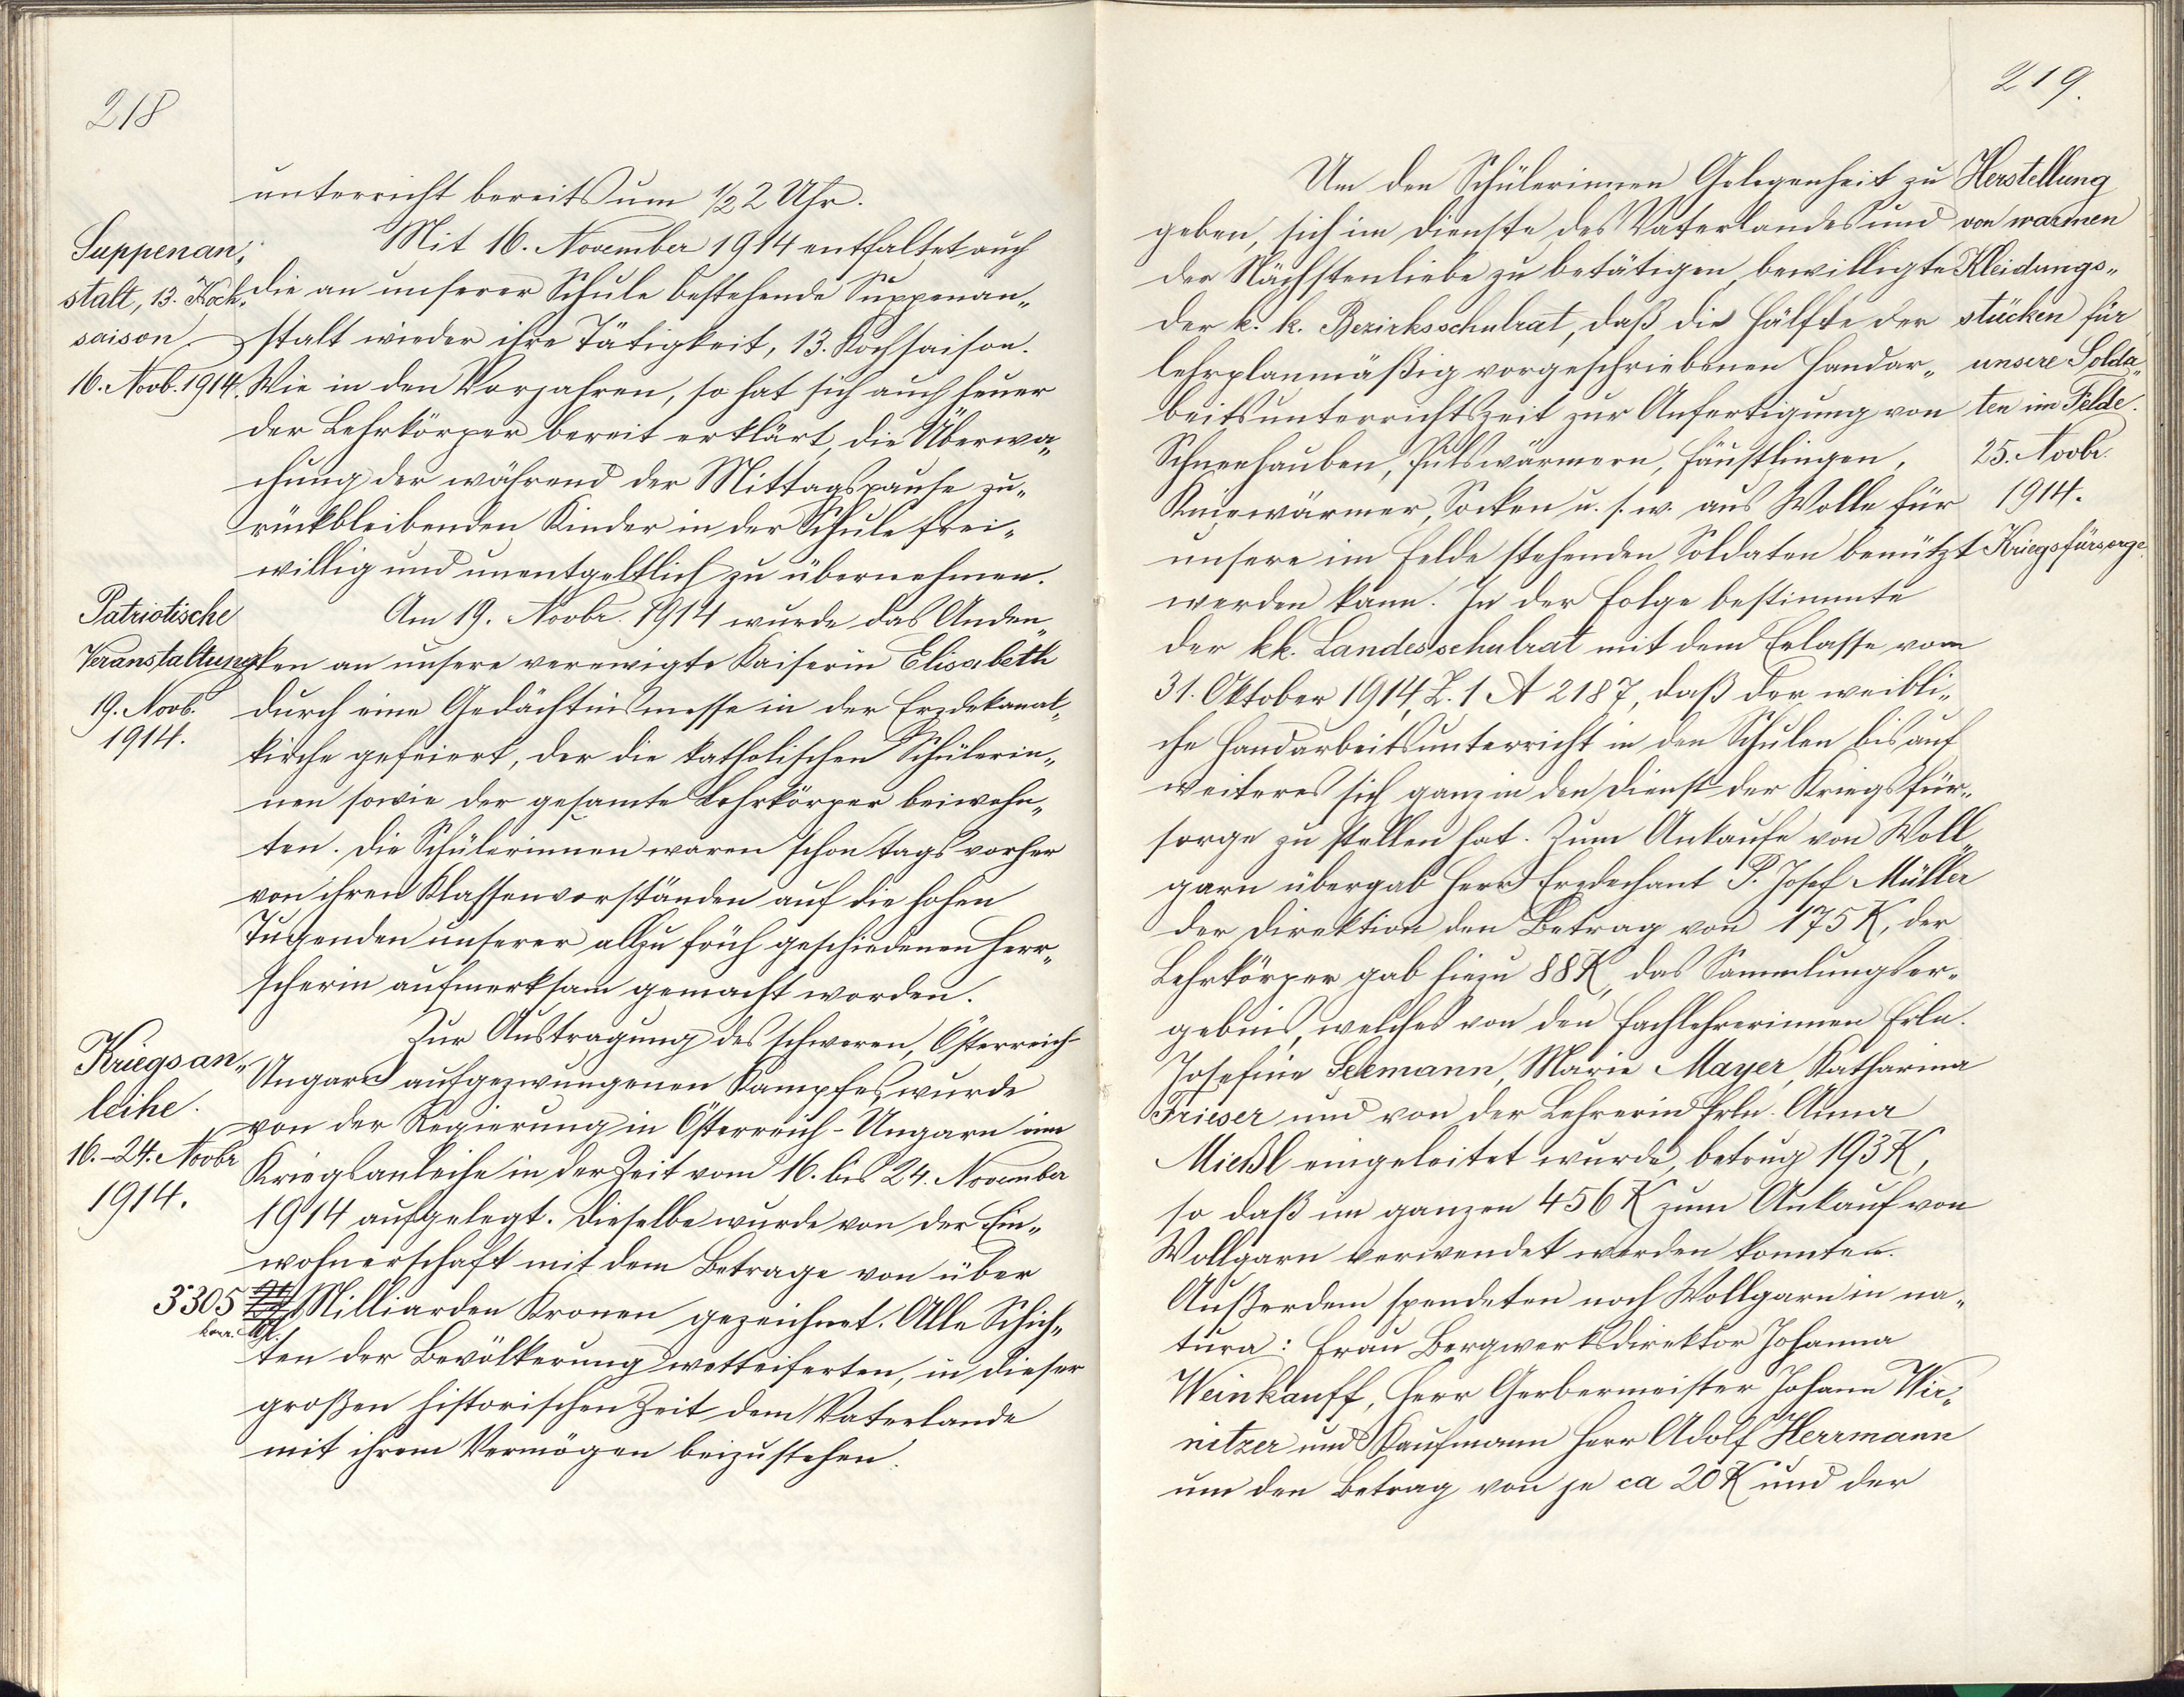 218
unterricht bereits um 1/2 2 Uhr.
Suppenan„
stalt, 13. Koch„
saison.
16. Novb. 1914.
Mit 16. November 1914 entfaltet auch
die an unserer Schule bestehende Suppenan„
stalt wieder ihre Tätigkeit, 13. Kochsaison.
Wie in den Vorjahren, so hat sich auch heuer
der Lehrkörper bereit erklärt, die Überwa„
chung der während der Mittagspause zu„
rückbleibenden Kinder in der Schule frei„
willig und unentgeltlich zu übernehmen.
Patriotische
Veranstaltung
19. Novb.
1914.
Am 19. Novbr. 1914 wurde das Anden„
ken an unsere verewigte Kaiserin Elisabeth
durch eine Gedächtnismesse in der Erzdekanal„
kirche gefeiert, der die katholischen Schülerin„
nen sowie der gesamte Lehrkörper beiwohn„
ten. Die Schülerinnen waren schon tags vorher
von ihren Klassenvorständen auf die hohen
Tugenden unserer allzu früh geschiedenen Herr„
scherin aufmerksam gemacht worden.
Kriegsan„
leihe.
16.–24. Novbr
1914.
Zur Austragung des schweren, Österreich-
Ungarn aufgezwungenen Kampfes wurde
von der Regierung in Österreich-Ungarn eine
Kriegsanleihe in der Zeit vom 16. bis 24. November
1914 aufgelegt. Dieselbe wurde von der Ein„
wohnerschaft mit dem Betrage von über
3·305 Milliarden Kronen gezeichnet. Alle Schich„
korr.
ten der Bevölkerung wetteiferten, in dieser
großen historischen Zeit dem Vaterlande
mit ihrem Vermögen beizustehen.
219.
Herstellung
von warmen
Kleidungs„
stücken für
unsere Solda„
ten im Felde.
25. Novbr.
1914.
Kriegsfürsorge.
Um den Schülerinnen Gelegenheit zu
geben, sich im Dienste des Vaterlandes und
der Nächstenliebe zu betätigen, bewilligte
der k. k. Bezirksschulrat, daß die Hälfte der
lehrplanmäßig vorgeschriebenen Handar„
beitsunterrichtszeit zur Anfertigung von
Schneehauben, Pulswärmern, Fäustlingen,
Kniewärmer, Socken u. s. w. aus Wolle für
unsere im Felde stehenden Soldaten benützt
werden kann. In der Folge bestimmte
der kk. Landesschulrat mit dem Erlasse vom
31. Oktober 1914, Z. 1 A 2187, daß der weibli„
che Handarbeitsunterricht in den Schulen bis auf
weiteres sich ganz in den Dienst der Kriegsfür„
sorge zu stellen hat. Zum Ankaufe von Woll„
garn übergab Herr Erzdechant P. Josef Müller
der Direktion den Betrag von 175 K, der
Lehrkörper gab hiezu 88 K, das Sammlungser„
gebnis, welches von den Fachlehrerinnen Frln.
Josefine Seemann, Marie Mayer, Katharina
Frieser und von der Lehrerin Frln. Anna
Mießl eingeleitet wurde, betrug 193 K,
so daß im ganzen 456 K zum Ankauf von
Wollgarn verwendet werden konnten.
Außerdem spendeten noch Wollgarn in na„
tura: Frau Bergwerksdirektor Johanna
Weinkauff, Herr Gerbermeister Johann Wir„
nitzer und Kaufmann Herr Adolf Herrmann
um den Betrag von je ca 20 K und der